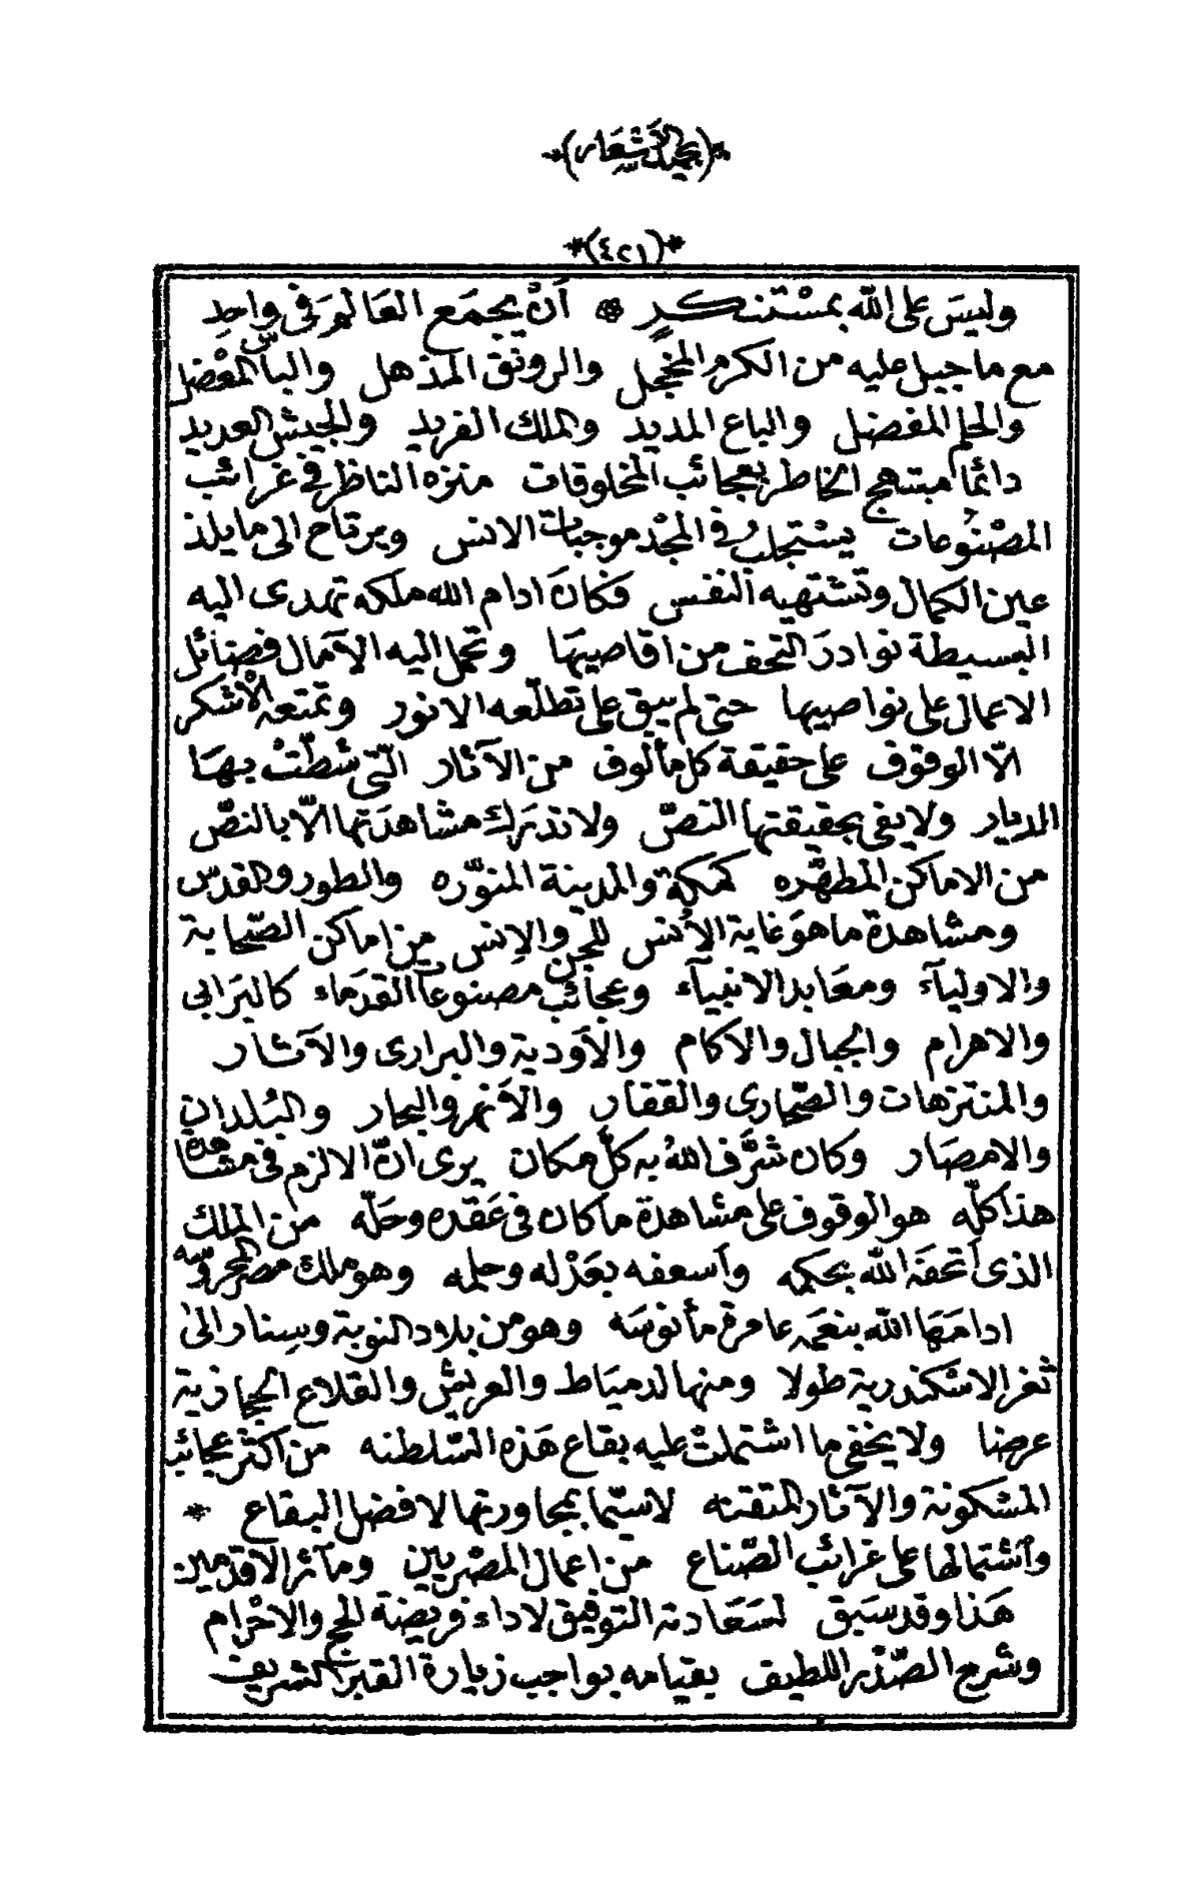 *(بحميد الأشعار)*
*(٤٢١)*
وليسَ على الله بمسْتنكرٍ * أَنْ يجمَع العَالمَ في واحِدِ
مع ما جبل عليه من الكرم المخجل والرونق المذهل والبأس المعْضل
والحلم المفضل والباع المديد والملك الفريد والجيش العديد
دائمًا مبتهج الخاطر بعجائب المخلوقات منزه الناظر في غرائب
المصْنُوعات يسْتجلب في المجْد موجبات الانس ويرتاح الى ما يلذ
عين الكمال وتشتهيه النفس فكانَ ادام الله ملكه تهدى اليه
البسيطة نوادرَ التحف من اقاصيهَا وتحمل اليه الآمال فضائل
الاعمال على نواصيها حتى لم يبق على تطلّعه الانور وتمتعه الأشكر
الاّ الوقوف على حقيقة كل مألوف من الآثار التّى شطّتْ بهَا
الديار ولا يفى بحقيقتها النصّ ولا تدْرَك مشاهدَتها الاّ بالنصّ
من الاماكن المطهّره كمَكة والمدينة المنوّره والطور والقدس
ومشاهدة ما هوَ غاية الأُنس للجن والإنس مِن اماكن الصّحابة
والاوليآء ومعَابد الانبيآء وعجائب مصنوعات القدمَاء كالبرَابى
والاهرام والجبال والآكام والأَودية والبرارى والآثار
والمنتزهات والصّحارى والقفار والأَنهر والبحار والبُلدان
والامصَار وكان شرَّف اللهُ به كلّ مكان يرى انّ الالزم فى مشاهدة
هذا كلّه هو الوقوف على مشاهدة ما كان فى عَقده وحَلّه من الملك
الذى أتحفَه الله بحكمه وأسعفه بعَدْله وحلمه وهو ملك مصر المحروسه
ادامَهَا الله بنعَمه عامرة مأنوسَه وهو من بلاد النوبة وسِنار الىٰ
ثغر الاسْكندرية طولا ومنها لدميَاط والعريش والقلاع الحجازية
عرضا ولا يخفى ما اشتملتْ عليه بقاع هَذه السّلطنه من اكثر عجائب
المسْكونة والآثار المتقنه لاسيّما بمجاورتها لافضل البقاع *
وأشتمالها على غرائب الصّناع من اعمال المصْريين ومآثر الأقدمين
هَذا وقد سَبق لسَعَادته التوفيق لاداء فريضة الحج والاحْرام
وشرح الصّدْر اللطيف بقيامه بواجب زيارة القبر الشريف